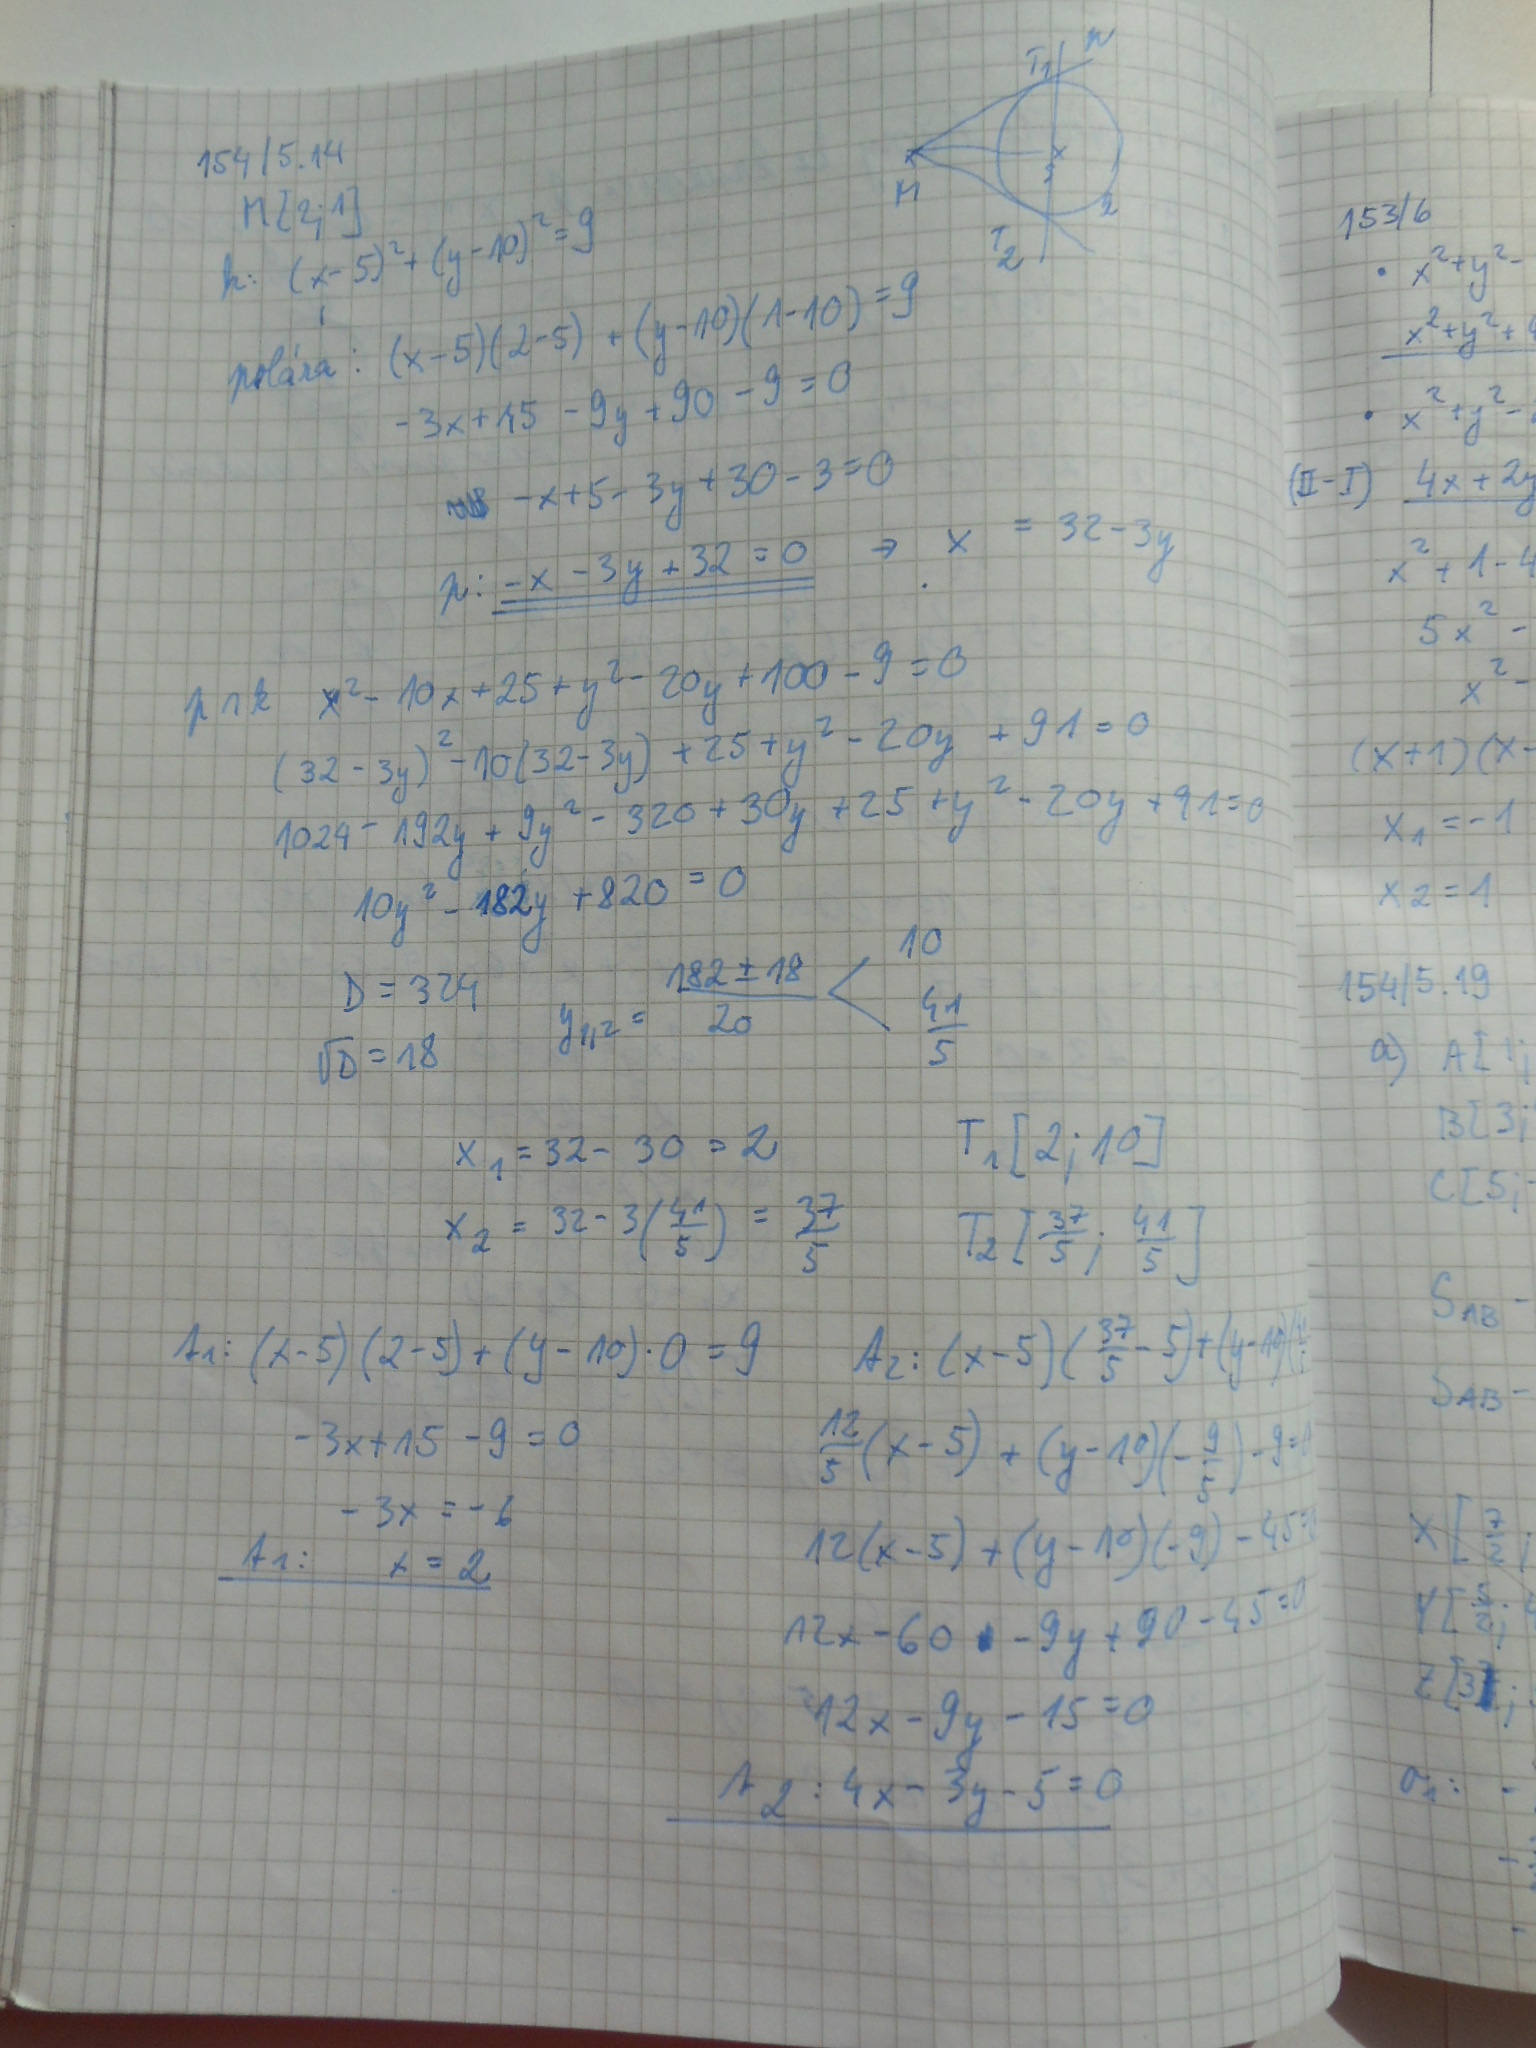 154/5.14
M[2;1]
k: (x-5)²+(y-10)²=9
T1
p
M
S
k
T2
polára: (x-5)(2-5) + (y-10)(1-10) = 9
-3x+15 -9y+90 -9=0
-x+5-3y+30-3=0
p: -x-3y+32=0 → x = 32-3y
p∩k x²-10x+25+y²-20y+100-9=0
(32-3y)²-10(32-3y)+25+y²-20y+91=0
1024-192y+9y²-320+30y+25+y²-20y+91=0
10y²-182y+820=0
D=324
√D=18
y1,2 = (182±18)/20 < 10
41/5
x1=32-30=2 T1[2;10]
x2 = 32-3(41/5) = 37/5 T2[37/5; 41/5]
t1: (x-5)(2-5)+(y-10)·0=9
-3x+15-9=0
-3x=-6
t1: x=2
t2: (x-5)(37/5-5)+(y-10)(41/5
12/5(x-5)+(y-10)(-9/5)-9=0
12(x-5)+(y-10)(-9)-45=0
12x-60 -9y+90-45=0
12x-9y-15=0
t2: 4x-3y-5=0
153/6
• x²+y²-
x²+y²+4
• x²+y²-
(II-I) 4x+2y
x²+1-4
5x²-
x²-
(x+1)(x-
x1=-1
x2=1
154/5.19
a) A[1;
B[3;
C[5;-
SAB-
SAB-
X[7/2;
Y[5/2;
Z[3;
o1: -